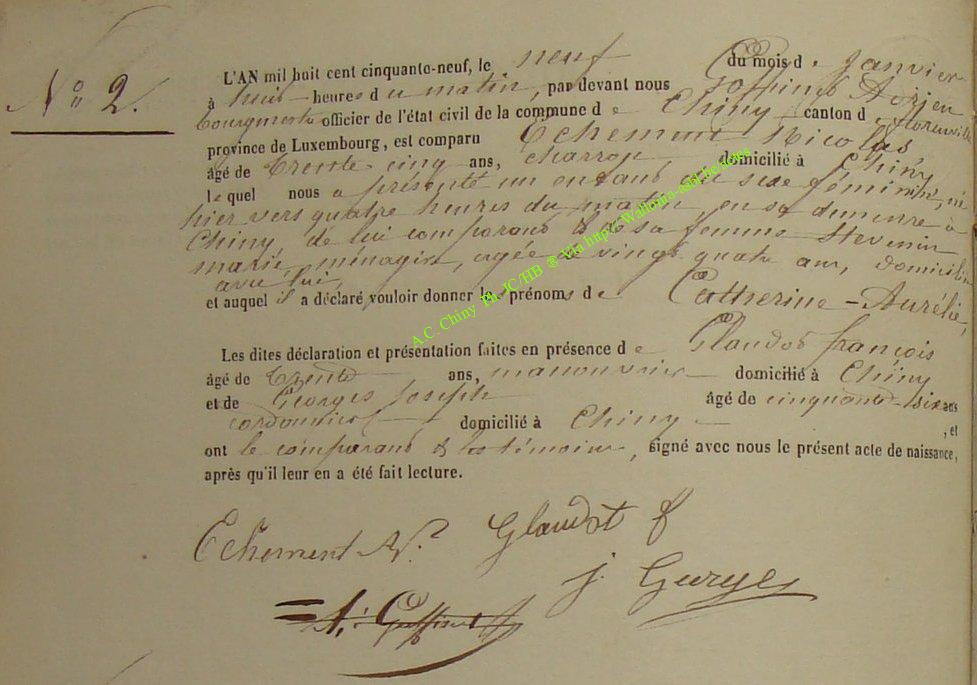 N° 2.
L'AN mil huit cent cinquante-neuf, le neuf du mois de Janvier
à huit heures du matin, par devant nous Goffinet Adrien
bourgmestre officier de l'état civil de la commune de Chiny canton de Florenville
province de Luxembourg, est comparu Echement Nicolas
âgé de trente cinq ans, charron, domicilié à Chiny
lequel nous a présenté un enfant du sexe féminin, né
hier vers quatre heures du matin en sa demeure à
Chiny, de lui comparant & de sa femme Stevenin
marie, ménagère, agée de vingt quatre ans, domiciliée
avec lui,
et auquel il a déclaré vouloir donner les prénoms de Catherine-Aurélie,
Les dites déclaration et présentation faites en présence de Glaudot françois
âgé de trente ans, manouvrier domicilié à Chiny
et de Georges Joseph âgé de cinquante-six ans
cordonnier domicilié à Chiny , et
ont le comparant & les témoins, signé avec nous le présent acte de naissance,
après qu'il leur en a été fait lecture.
Echement N. Glaudot f
J. Gurges
A. Goffinet
A.C. Chiny Ph. JC/HB ® Via http://Wallonia-asbl.be/asps